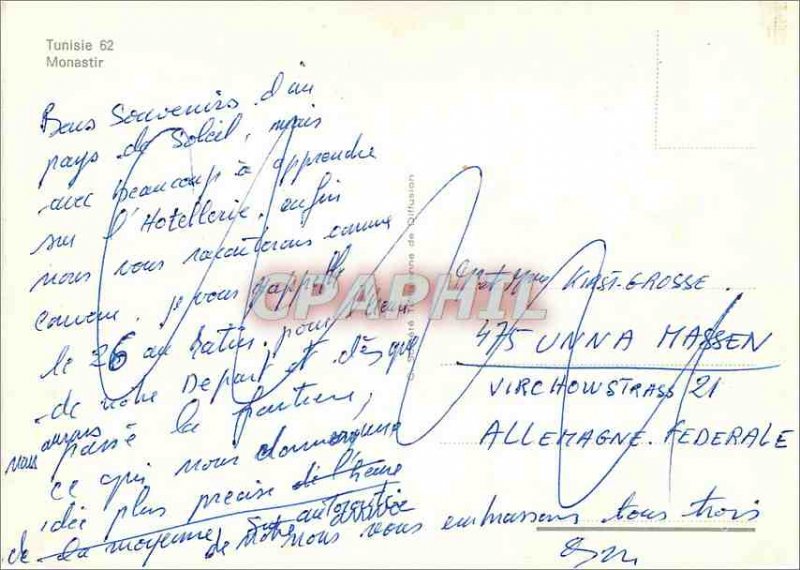 Tunisie 62
Monastir
Bons Souvenirs d'un
pays de Soleil, mais
avec beaucoup à apprendre
sur l'Hotellerie. enfin
nous vous raconterons comme
convenu. je vous
le 26 au matin. pour
de notre Départ et dès que
nous aurons passé la frontière,
ce qui nous donnera une
idée plus precise de l'heure
de la moyenne sur autoroute
de notre arrivée
nous vous embrassons tous trois
© Société Tunisienne de Diffusion
CPAPHIL
KIRST-GROSSE.
475 UNNA MASSEN
VIRCHOWSTRASS 21
ALLEMAGNE. FEDERALE